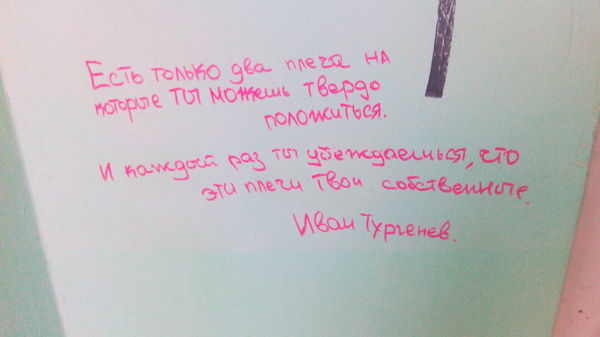 Есть только два плеча на
которые ты можешь твердо
положиться.
И каждый раз ты убеждаешься, что
эти плечи твои собственные.
Иван Тургенев.